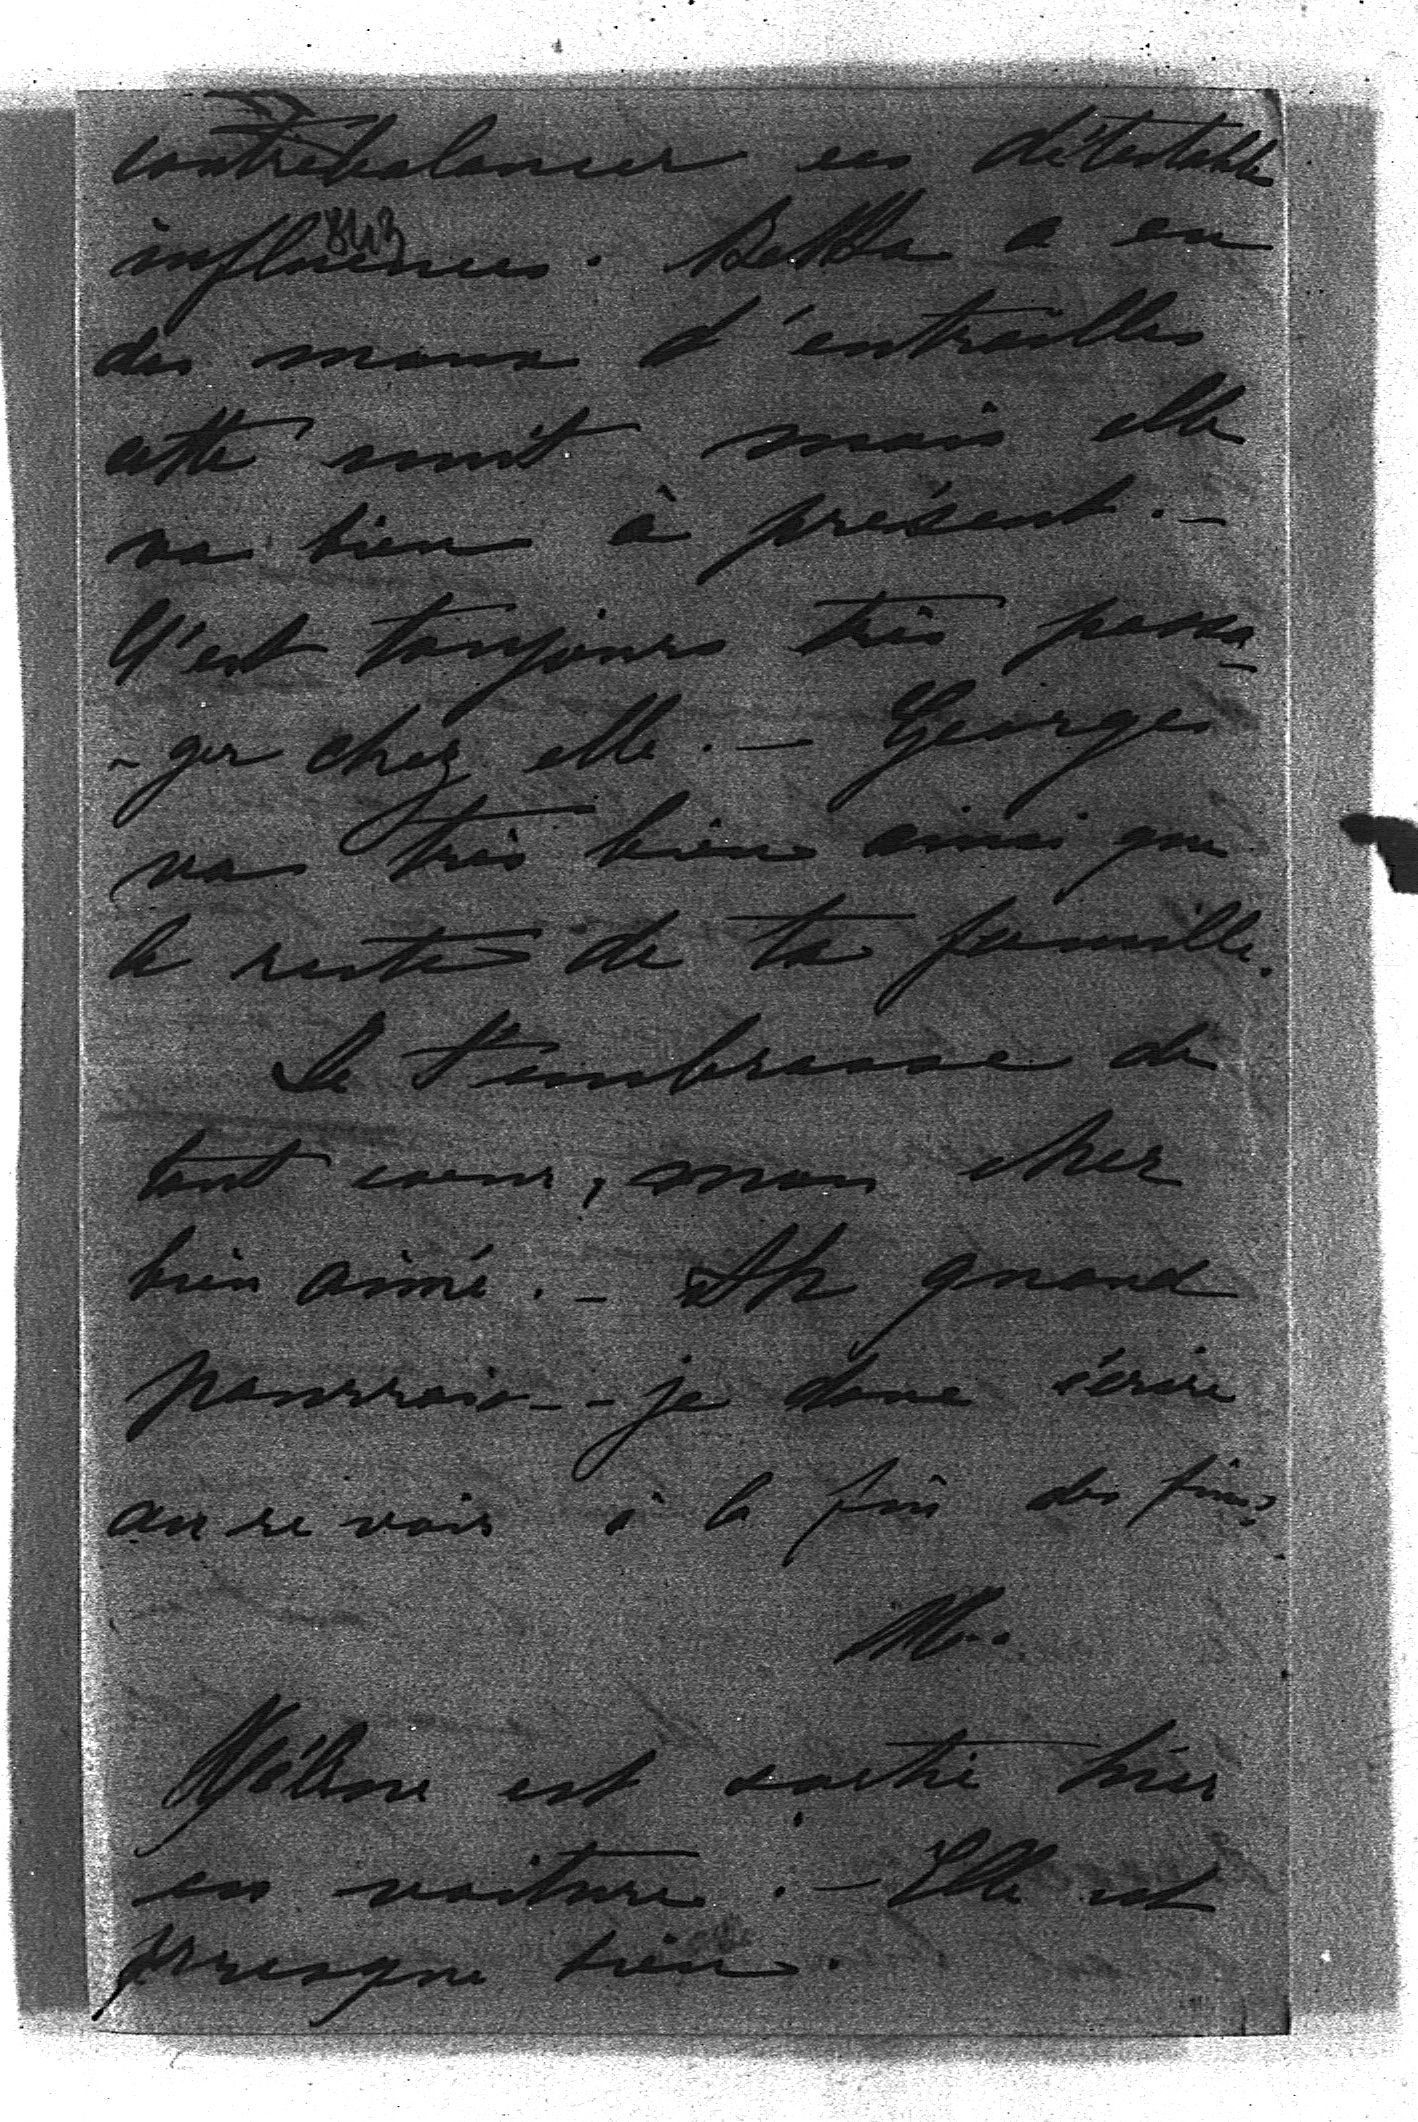 contrebalancer ces détestables
influences. Bella a eu
843
des maux d'entrailles
cette nuit mais elle
va bien à présent. –
C'est toujours très passa-
-ger chez elle. – Georges
va très bien ainsi que
le reste de ta famille.
Je t'embrasse de
tout cœur, mon cher
bien aimé. – Ah quand
pourrais-je donc écrire
au revoir à la fin des fins?
M..
est sortie hier
en voiture. – Elle est
presque bien.